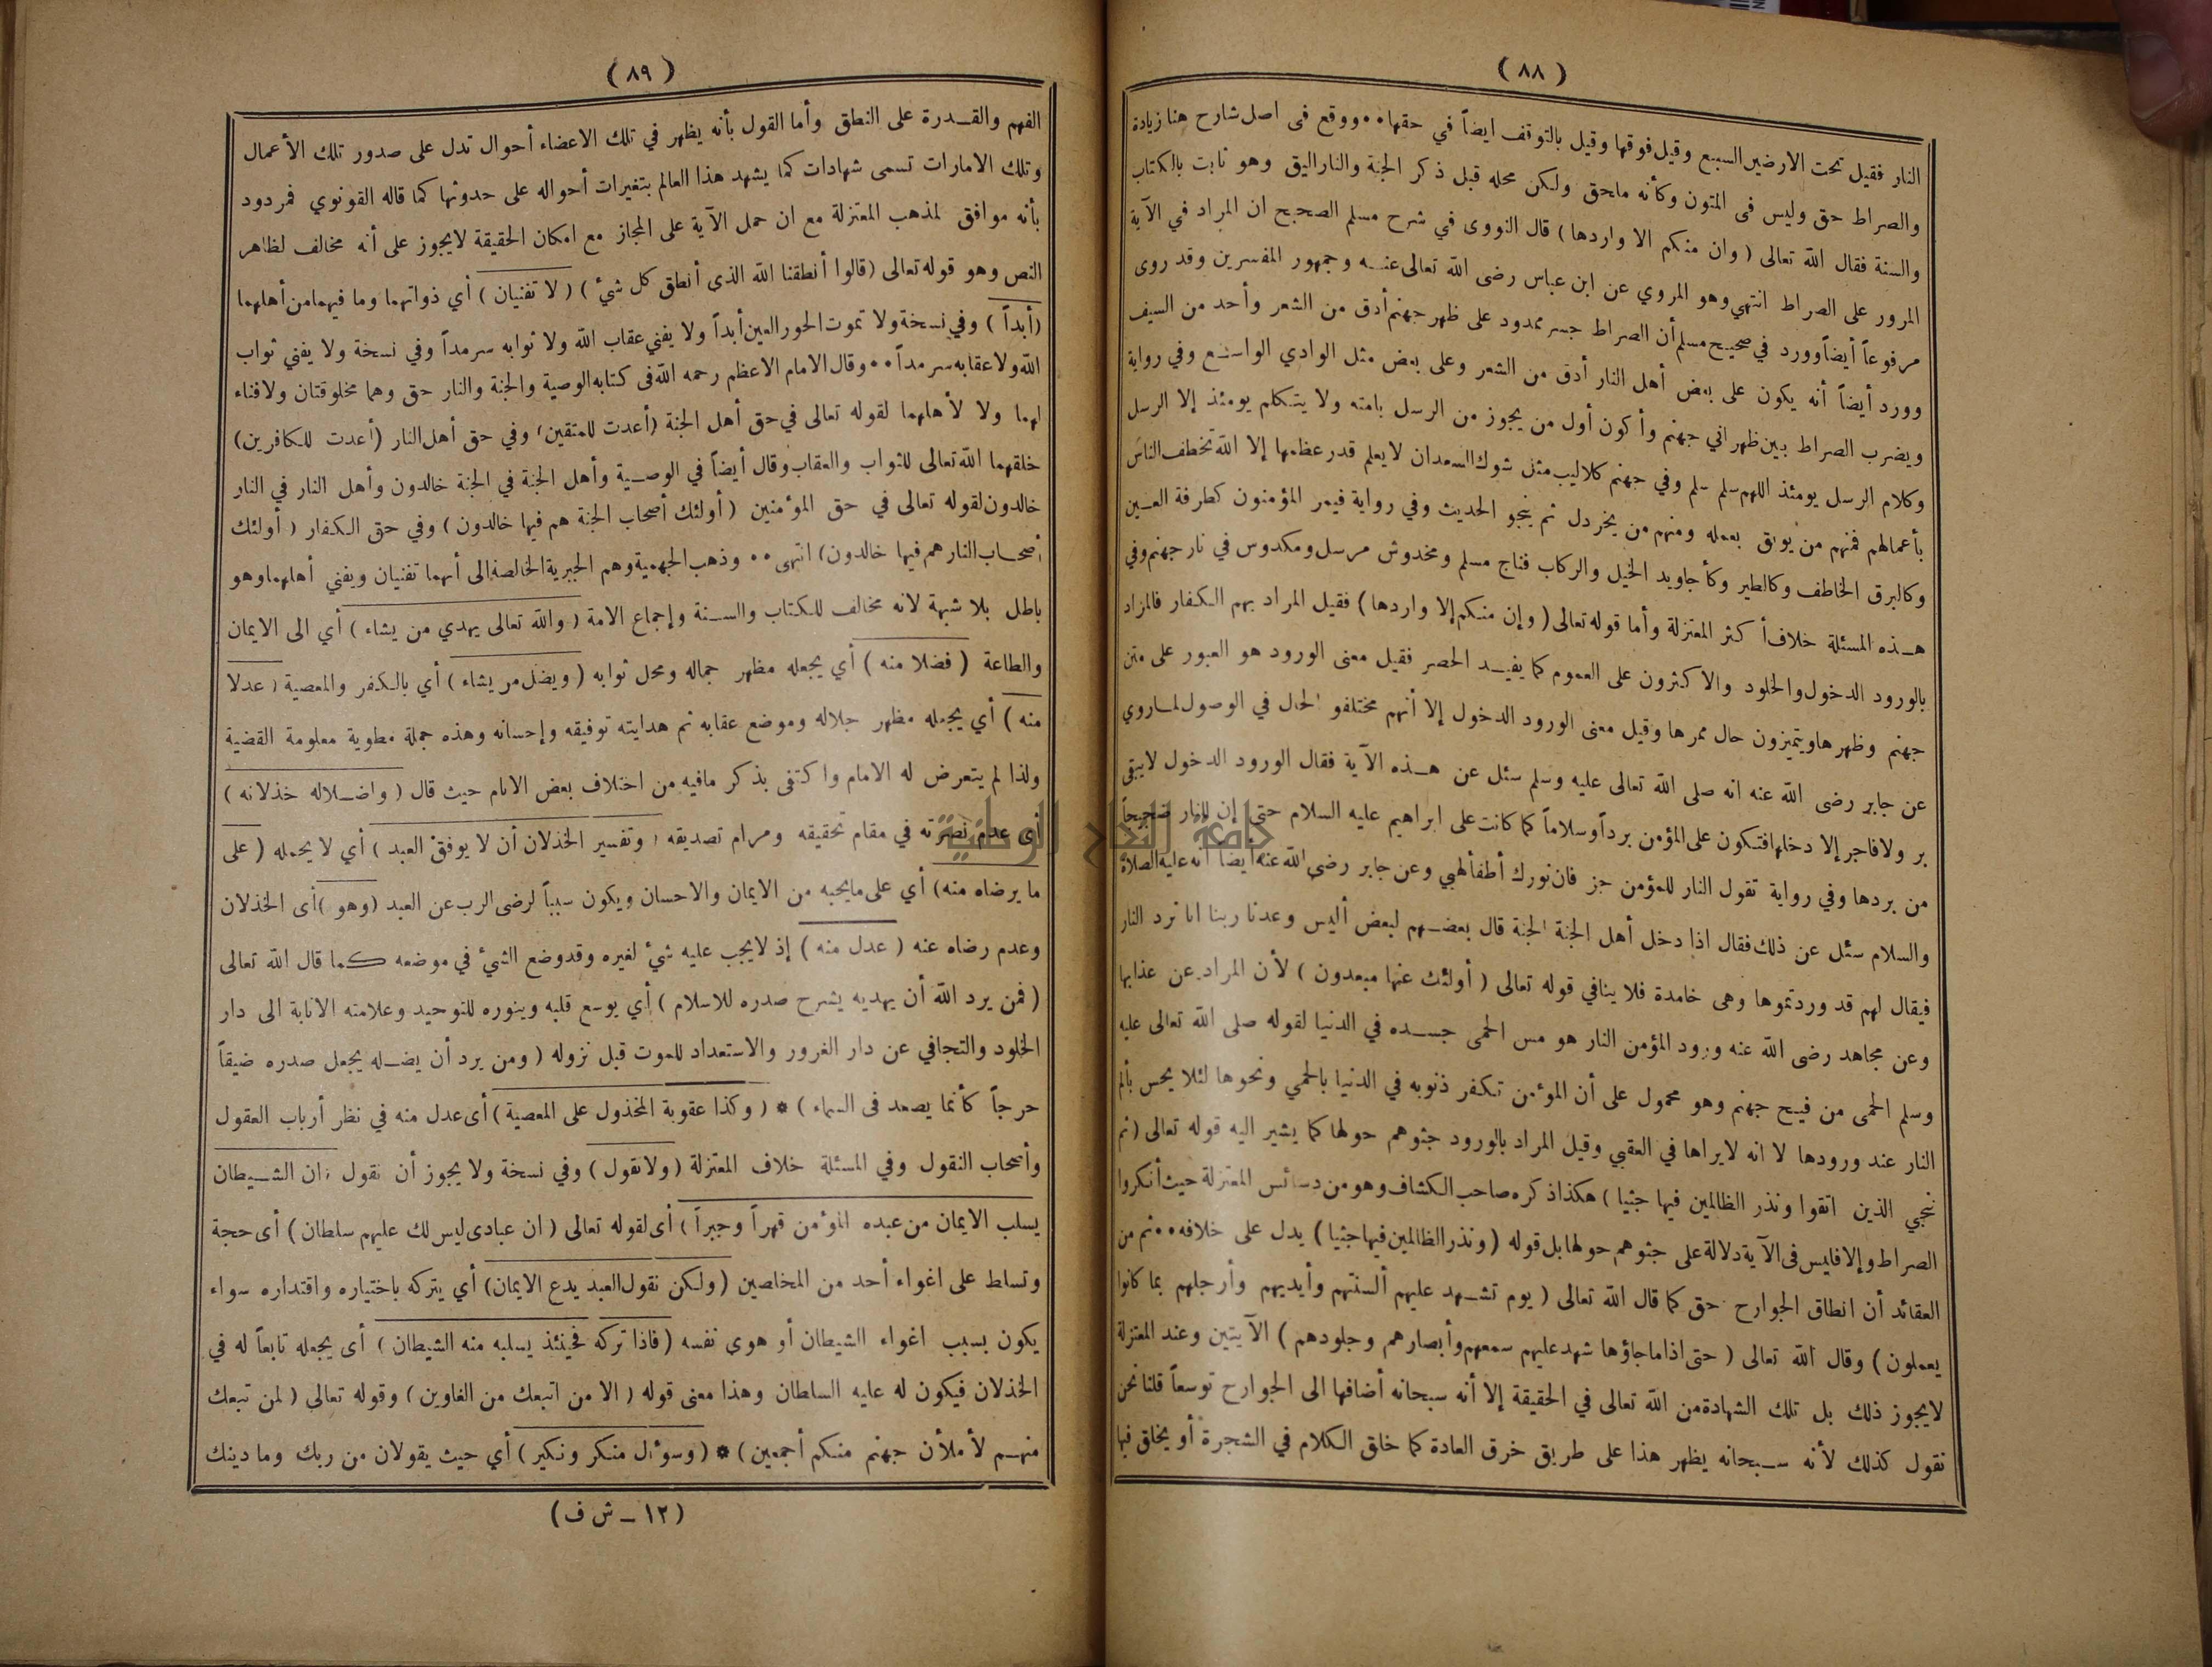 ( ٨٨ )
النار فقيل تحت الارضين السبع وقيل فوقها وقيل بالتوقف ايضاً في حقها ٠٠ ووقع فى اصل شارح هنا زيادة
والصراط حق وليس فى المتون وكأنه ملحق ولكن محله قبل ذكر الجنة والنار اليق وهو ثابت بالكتاب
والسنة فقال الله تعالى ( وان منكم الا واردها ) قال النووى في شرح مسلم الصحيح ان المراد في الآية
المرور على الصراط انتهي وهو المروي عن ابن عباس رضى الله تعالى عنه وجمهور المفسرين وقد روى
مرفوعاً أيضاً وورد في صحيح مسلم أن الصراط جسر ممدود على ظهر جهنم أدق من الشعر وأحد من السيف
وورد أيضاً أنه يكون على بعض أهل النار أدق من الشعر وعلى بعض مثل الوادي الواسع وفي رواية
ويضرب الصراط بين ظهراني جهنم وأكون أول من يجوز من الرسل بامته ولا يتكلم يومئذ إلا الرسل
وكلام الرسل يومئذ اللهم سلم سلم وفي جهنم كلاليب مثل شوك السعدان لا يعلم قدر عظمها إلا الله تخطف الناس
بأعمالهم فمنهم من يوبق بعمله ومنهم من يخردل ثم ينجو الحديث وفي رواية فيمر المؤمنون كطرفة العين
وكالبرق الخاطف وكالطير وكأجاويد الخيل والركاب فناج مسلم ومخدوش مرسل ومكدوس في نار جهنم وفي
هذه المسئلة خلاف أكثر المعتزلة وأما قوله تعالى ( وإن منكم إلا واردها ) فقيل المراد بهم الكفار فالمراد
بالورود الدخول والخلود والاكثرون على العموم كما يفيد الحصر فقيل معنى الورود هو العبور على متن
جهنم وظهرها ويتميزون حال ممرها وقيل معنى الورود الدخول إلا أنهم مختلفو الحال في الوصول لما روي
عن جابر رضى الله عنه انه صلى الله تعالى عليه وسلم سئل عن هذه الآية فقال الورود الدخول لا يبقى
بر ولا فاجر إلا دخلها فتكون على المؤمن برداً وسلاماً كما كانت على ابراهيم عليه السلام حتى إن للنار ضجيجاً
من بردها وفي رواية تقول النار للمؤمن جز فان نورك أطفأ لهبي وعن جابر رضي الله عنه ايضا أنه عليه الصلاة
والسلام سئل عن ذلك فقال اذا دخل أهل الجنة الجنة قال بعضهم لبعض أليس وعدنا ربنا انا نرد النار
فيقال لهم قد وردتموها وهى خامدة فلا ينافي قوله تعالى ( أولئك عنها مبعدون ) لأن المراد عن عذابها
وعن مجاهد رضى الله عنه ورود المؤمن النار هو مس الحمى جسده في الدنيا لقوله صلى الله تعالى عليه
وسلم الحمى من فيح جهنم وهو محمول على أن المؤمن تكفر ذنوبه في الدنيا بالحمي ونحوها لئلا يحس بألم
النار عند ورودها لا انه لايراها في العقبي وقيل المراد بالورود جثوهم حولها كما يشير اليه قوله تعالى ( ثم
ننجي الذين اتقوا ونذر الظالمين فيها جثيا ) هكذا ذكره صاحب الكشاف وهو من دسائس المعتزلة حيث أنكروا
الصراط وإلا فليس فى الآية دلالة على جثوهم حولها بل قوله ( ونذر الظالمين فيها جثيا ) يدل على خلافه ٠٠ ثم من
العقائد أن انطاق الجوارح حق كما قال الله تعالى ( يوم تشهد عليهم ألسنتهم وأيديهم وأرجلهم بما كانوا
يعملون ) وقال الله تعالى ( حتى اذا ما جاؤها شهد عليهم سمعهم وأبصارهم وجلودهم ) الآيتين وعند المعتزلة
لايجوز ذلك بل تلك الشهادة من الله تعالى في الحقيقة إلا أنه سبحانه أضافها الى الجوارح توسعاً قلنا نحن
نقول كذلك لأنه سبحانه يظهر هذا على طريق خرق العادة كما خلق الكلام في الشجرة أو يخلق فيها
( ٨٩ )
الفهم والقدرة على النطق وأما القول بأنه يظهر في تلك الاعضاء أحوال تدل على صدور تلك الأعمال
وتلك الامارات تسمى شهادات كما يشهد هذا العالم بتغيرات أحواله على حدوثها كما قاله القونوي فمردود
بأنه موافق لمذهب المعتزلة مع ان حمل الآية على المجاز مع امكان الحقيقة لايجوز على أنه مخالف لظاهر
النص وهو قوله تعالى ( قالوا أنطقنا الله الذى أنطق كل شيء ) ( لا تفنيان ) أي ذواتهما وما فيهما من أهلهما
( أبداً ) وفي نسخة ولا تموت الحور العين أبداً ولا يفني عقاب الله ولا ثوابه سرمداً وفي نسخة ولا يفني ثواب
الله ولا عقابه سرمداً ٠٠ وقال الامام الاعظم رحمه الله فى كتابه الوصية والجنة والنار حق وهما مخلوقتان ولا فناء
لهما ولا لأهلهما لقوله تعالى في حق أهل الجنة ( أعدت للمتقين ) وفي حق أهل النار ( أعدت للكافرين )
خلقهما الله تعالى للثواب والعقاب وقال أيضاً في الوصية وأهل الجنة في الجنة خالدون وأهل النار في النار
خالدون لقوله تعالى في حق المؤمنين ( أولئك أصحاب الجنة هم فيها خالدون ) وفي حق الكفار ( أولئك
أصحاب النار هم فيها خالدون ) انتهى ٠٠ وذهب الجهمية وهم الجبرية الخالصة الى أنهما تفنيان ويفني أهلهما وهو
باطل بلا شبهة لانه مخالف للكتاب والسنة وإجماع الامة ( والله تعالى يهدي من يشاء ) أي الى الايمان
والطاعة ( فضلا منه ) أي يجعله مظهر جماله ومحل ثوابه ( ويضل من يشاء ) أي بالكفر والمعصية ( عدلا
منه ) أي يجعله مظهر جلاله وموضع عقابه ثم هدايته توفيقه وإحسانه وهذه جملة مطوية معلومة القضية
ولذا لم يتعرض له الامام واكتفى بذكر مافيه من اختلاف بعض الانام حيث قال ( واضلاله خذلانه )
أى عدم نصرته في مقام تحقيقه ومرام تصديقه ( وتفسير الخذلان أن لا يوفق العبد ) أي لا يحمله ( على
ما يرضاه منه ) أي على مايحبه من الايمان والاحسان ويكون سبباً لرضى الرب عن العبد ( وهو ) أى الخذلان
وعدم رضاه عنه ( عدل منه ) إذ لايجب عليه شيء لغيره وقد وضع الشيء في موضعه كما قال الله تعالى
( فمن يرد الله أن يهديه يشرح صدره للاسلام ) أي يوسع قلبه وينوره للتوحيد وعلامته الانابة الى دار
الخلود والتجافي عن دار الغرور والاستعداد للموت قبل نزوله ( ومن يرد أن يضله يجعل صدره ضيقاً
حرجاً كأنما يصعد فى السماء ) * ( وكذا عقوبة المخذول على المعصية ) أى عدل منه في نظر أرباب العقول
وأصحاب النقول وفي المسئلة خلاف المعتزلة ( ولا نقول ) وفي نسخة ولا يجوز أن نقول ( ان الشيطان
يسلب الايمان من عبده المؤمن قهراً وجبراً ) أى لقوله تعالى ( ان عبادى ليس لك عليهم سلطان ) أى حجة
وتسلط على اغواء أحد من المخلصين ( ولكن نقول العبد يدع الايمان ) أي يتركه باختياره واقتداره سواء
يكون بسبب اغواء الشيطان أو هوي نفسه ( فاذا تركه فحينئذ يسلبه منه الشيطان ) أى يجعله تابعاً له في
الخذلان فيكون له عليه السلطان وهذا معنى قوله ( الا من اتبعك من الغاوين ) وقوله تعالى ( لمن تبعك
منهم لأملأن جهنم منكم أجمعين ) * ( وسؤال منكر ونكير ) أي حيث يقولان من ربك وما دينك
( ١٢ ـ ش ف )
جامعة النجاح الوطنية